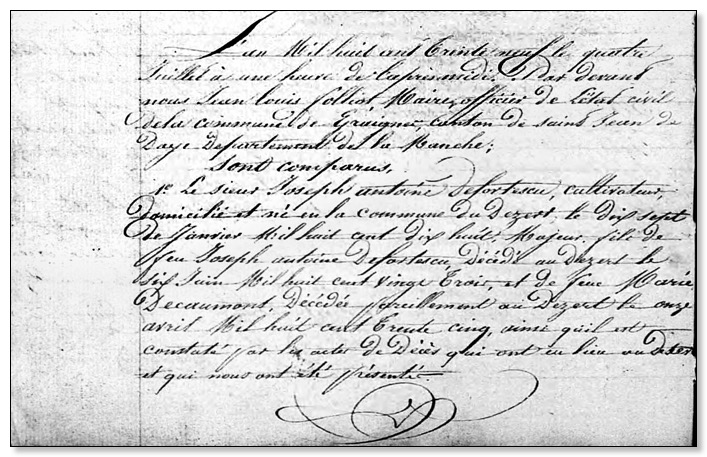 L'an Mil huit cent Trente neuf le quatre
Juillet à une heure de l'après midi, et par devant
nous Jean Louis folliot, Maire, officier de l'état civil
de la commune de Graignes, canton de saint Jean de
Daye Departement de la Manche;
Sont comparus,
1° Le sieur Joseph antoine Defortescu, cultivateur,
domicilié et né en la commune du Dezert, le dix sept
de Janvier Mil huit cent dix huit, Majeur, fils de
feu Joseph antoine Defortescu, Décédé au Dezert le
six Juin Mil huit cent vingt Trois, et de feue Marie
Decaumont, Décédée pareillement au Dezert le onze
avril Mil huit cent Trente cinq, ainsi qu'il est
constaté par les actes de Décès qui ont eu lieu au Dezert
et qui nous ont été présentés.